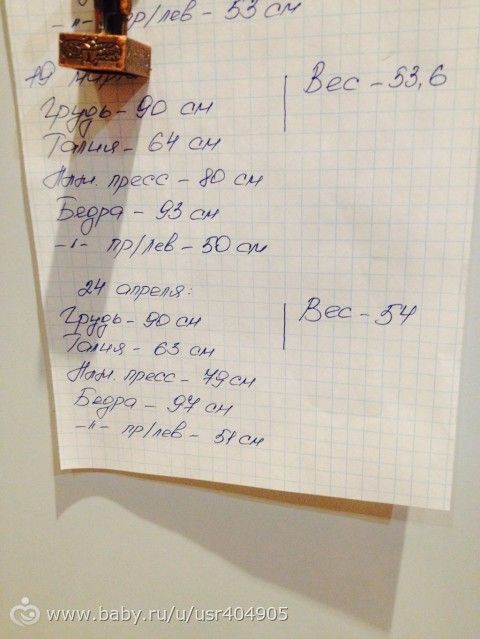 -"- пр/лев - 53 см
19 мар
Вес - 53,6
Грудь - 90 см
Талия - 64 см
Ниж. пресс - 80 см
Бедра - 93 см
-"- пр/лев - 50 см
24 апреля:
Грудь - 90 см
Вес - 54
Талия - 63 см
Ниж. пресс - 79 см
Бедра - 97 см
-"- пр/лев - 51 см
www.baby.ru/u/usr404905